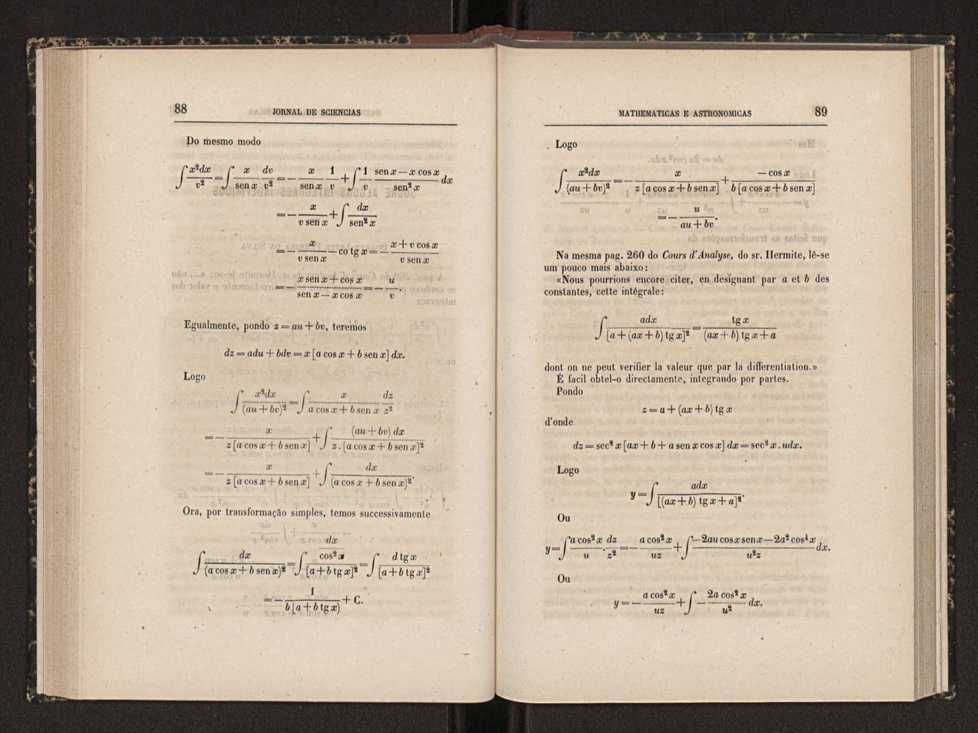 88 JORNAL DE SCIENCIAS
Do mesmo modo
∫ x²dx/v² = ∫ x/sen x · dv/v² = − x/sen x · 1/v + ∫ 1/v · (sen x — x cos x)/sen² x dx
= − x/(v sen x) + ∫ dx/sen² x
= − x/(v sen x) — co tg x = − (x + v cos x)/(v sen x)
= − (x sen x + cos x)/(sen x — x cos x) = − u/v.
Egualmente, pondo z = au + bv, teremos
dz = adu + bdv = x [a cos x + b sen x] dx.
Logo
∫ x²dx/(au + bv)² = ∫ x/(a cos x + b sen x) · dz/z²
= − x/(z [a cos x + b sen x]) + ∫ (au + bv) dx/(z . [a cos x + b sen x]²)
= − x/(z [a cos x + b sen x]) + ∫ dx/(a cos x + b sen x)².
Ora, por transformação simples, temos successivamente
∫ dx/(a cos x + b sen x)² = ∫ (dx/cos² x)/[a + b tg x]² = ∫ d tg x/[a + b tg x]²
= − 1/(b [a + b tg x)) + C.
MATHEMATICAS E ASTRONOMICAS 89
Logo
∫ x²dx/(au + bv)² = − x/(z [a cos x + b sen x]) + (— cos x)/(b [a cos x + b sen x])
= − u/(au + bv).
Na mesma pag. 260 do Cours d'Analyse, do sr. Hermite, lê-se
um pouco mais abaixo:
«Nous pourrions encore citer, en designant par a et b des
constantes, cette intégrale:
∫ adx/[a + (ax + b) tg x]² = tg x/((ax + b) tg x + a)
dont on ne peut verifier la valeur que par la differentiation.»
É facil obtel-o directamente, integrando por partes.
Pondo
z = a + (ax + b) tg x
d'onde
dz = sec² x [ax + b + a sen x cos x] dx = sec² x . udx.
Logo
y = ∫ adx/[(ax + b) tg x + a]².
Ou
y = ∫ a cos² x/u · dz/z² = − a cos² x/uz + ∫ (—2au cos x sen x—2a² cos⁴ x)/u²z dx.
Ou
y = − a cos² x/uz + ∫ − 2a cos² x/u² dx.